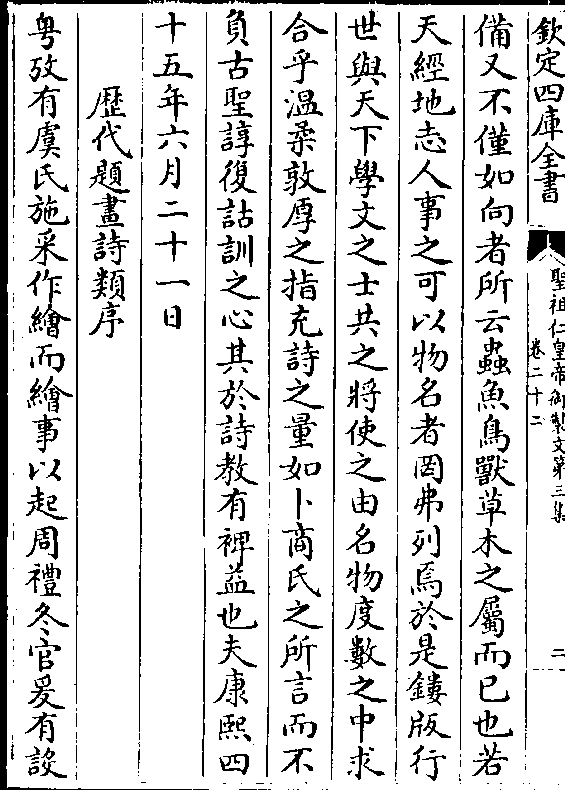 欽定四庫全書
聖祖仁皇帝御製文第三集
卷二十二
二
備又不僅如向者所云蟲魚鳥獸草木之屬而已也若
天經地志人事之可以物名者罔弗列焉於是鏤版行
世與天下學文之士共之將使之由名物度數之中求
合乎溫柔敦厚之指充詩之量如卜商氏之所言而不
負古聖諄復詁訓之心其於詩教有裨益也夫康熙四
十五年六月二十一日
歷代題畫詩類序
粤攷有虞氏施采作繪而繪事以起周禮冬官爰有設